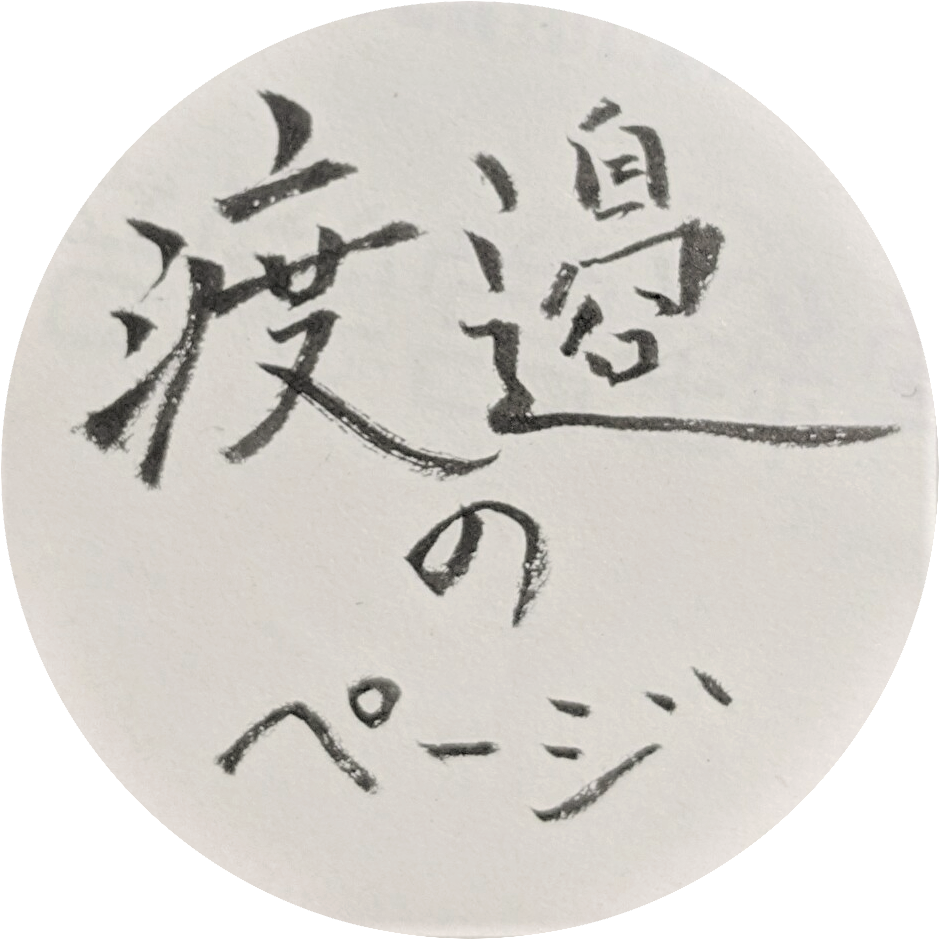 渡邉
の
ページ